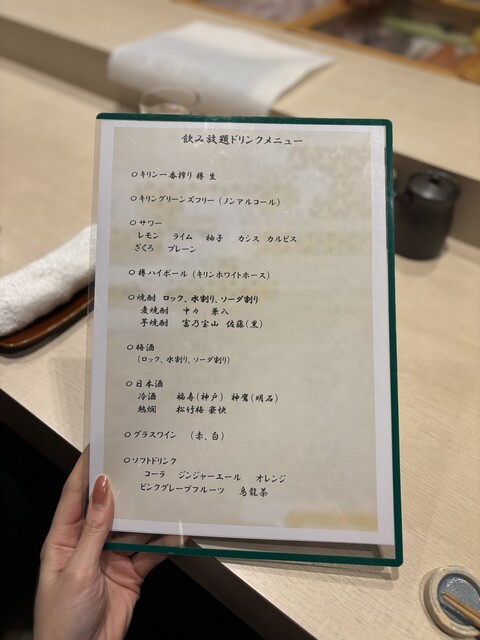 飲み放題ドリンクメニュー
○キリン一番搾り 樽 生
○キリングリーンズフリー（ノンアルコール）
○サワー
レモン ライム 柚子 カシス カルピス
ざくろ プレーン
○樽ハイボール（キリンホワイトホース）
○焼酎 ロック、水割り、ソーダ割り
麦焼酎 中々 兼八
芋焼酎 富乃宝山 佐藤（黒）
○梅酒
（ロック、水割り、ソーダ割り）
○日本酒
冷酒 福寿（神戸） 神鷹（明石）
熱燗 松竹梅 豪快
○グラスワイン （赤、白）
○ソフトドリンク
コーラ ジンジャーエール オレンジ
ピンクグレープフルーツ 烏龍茶